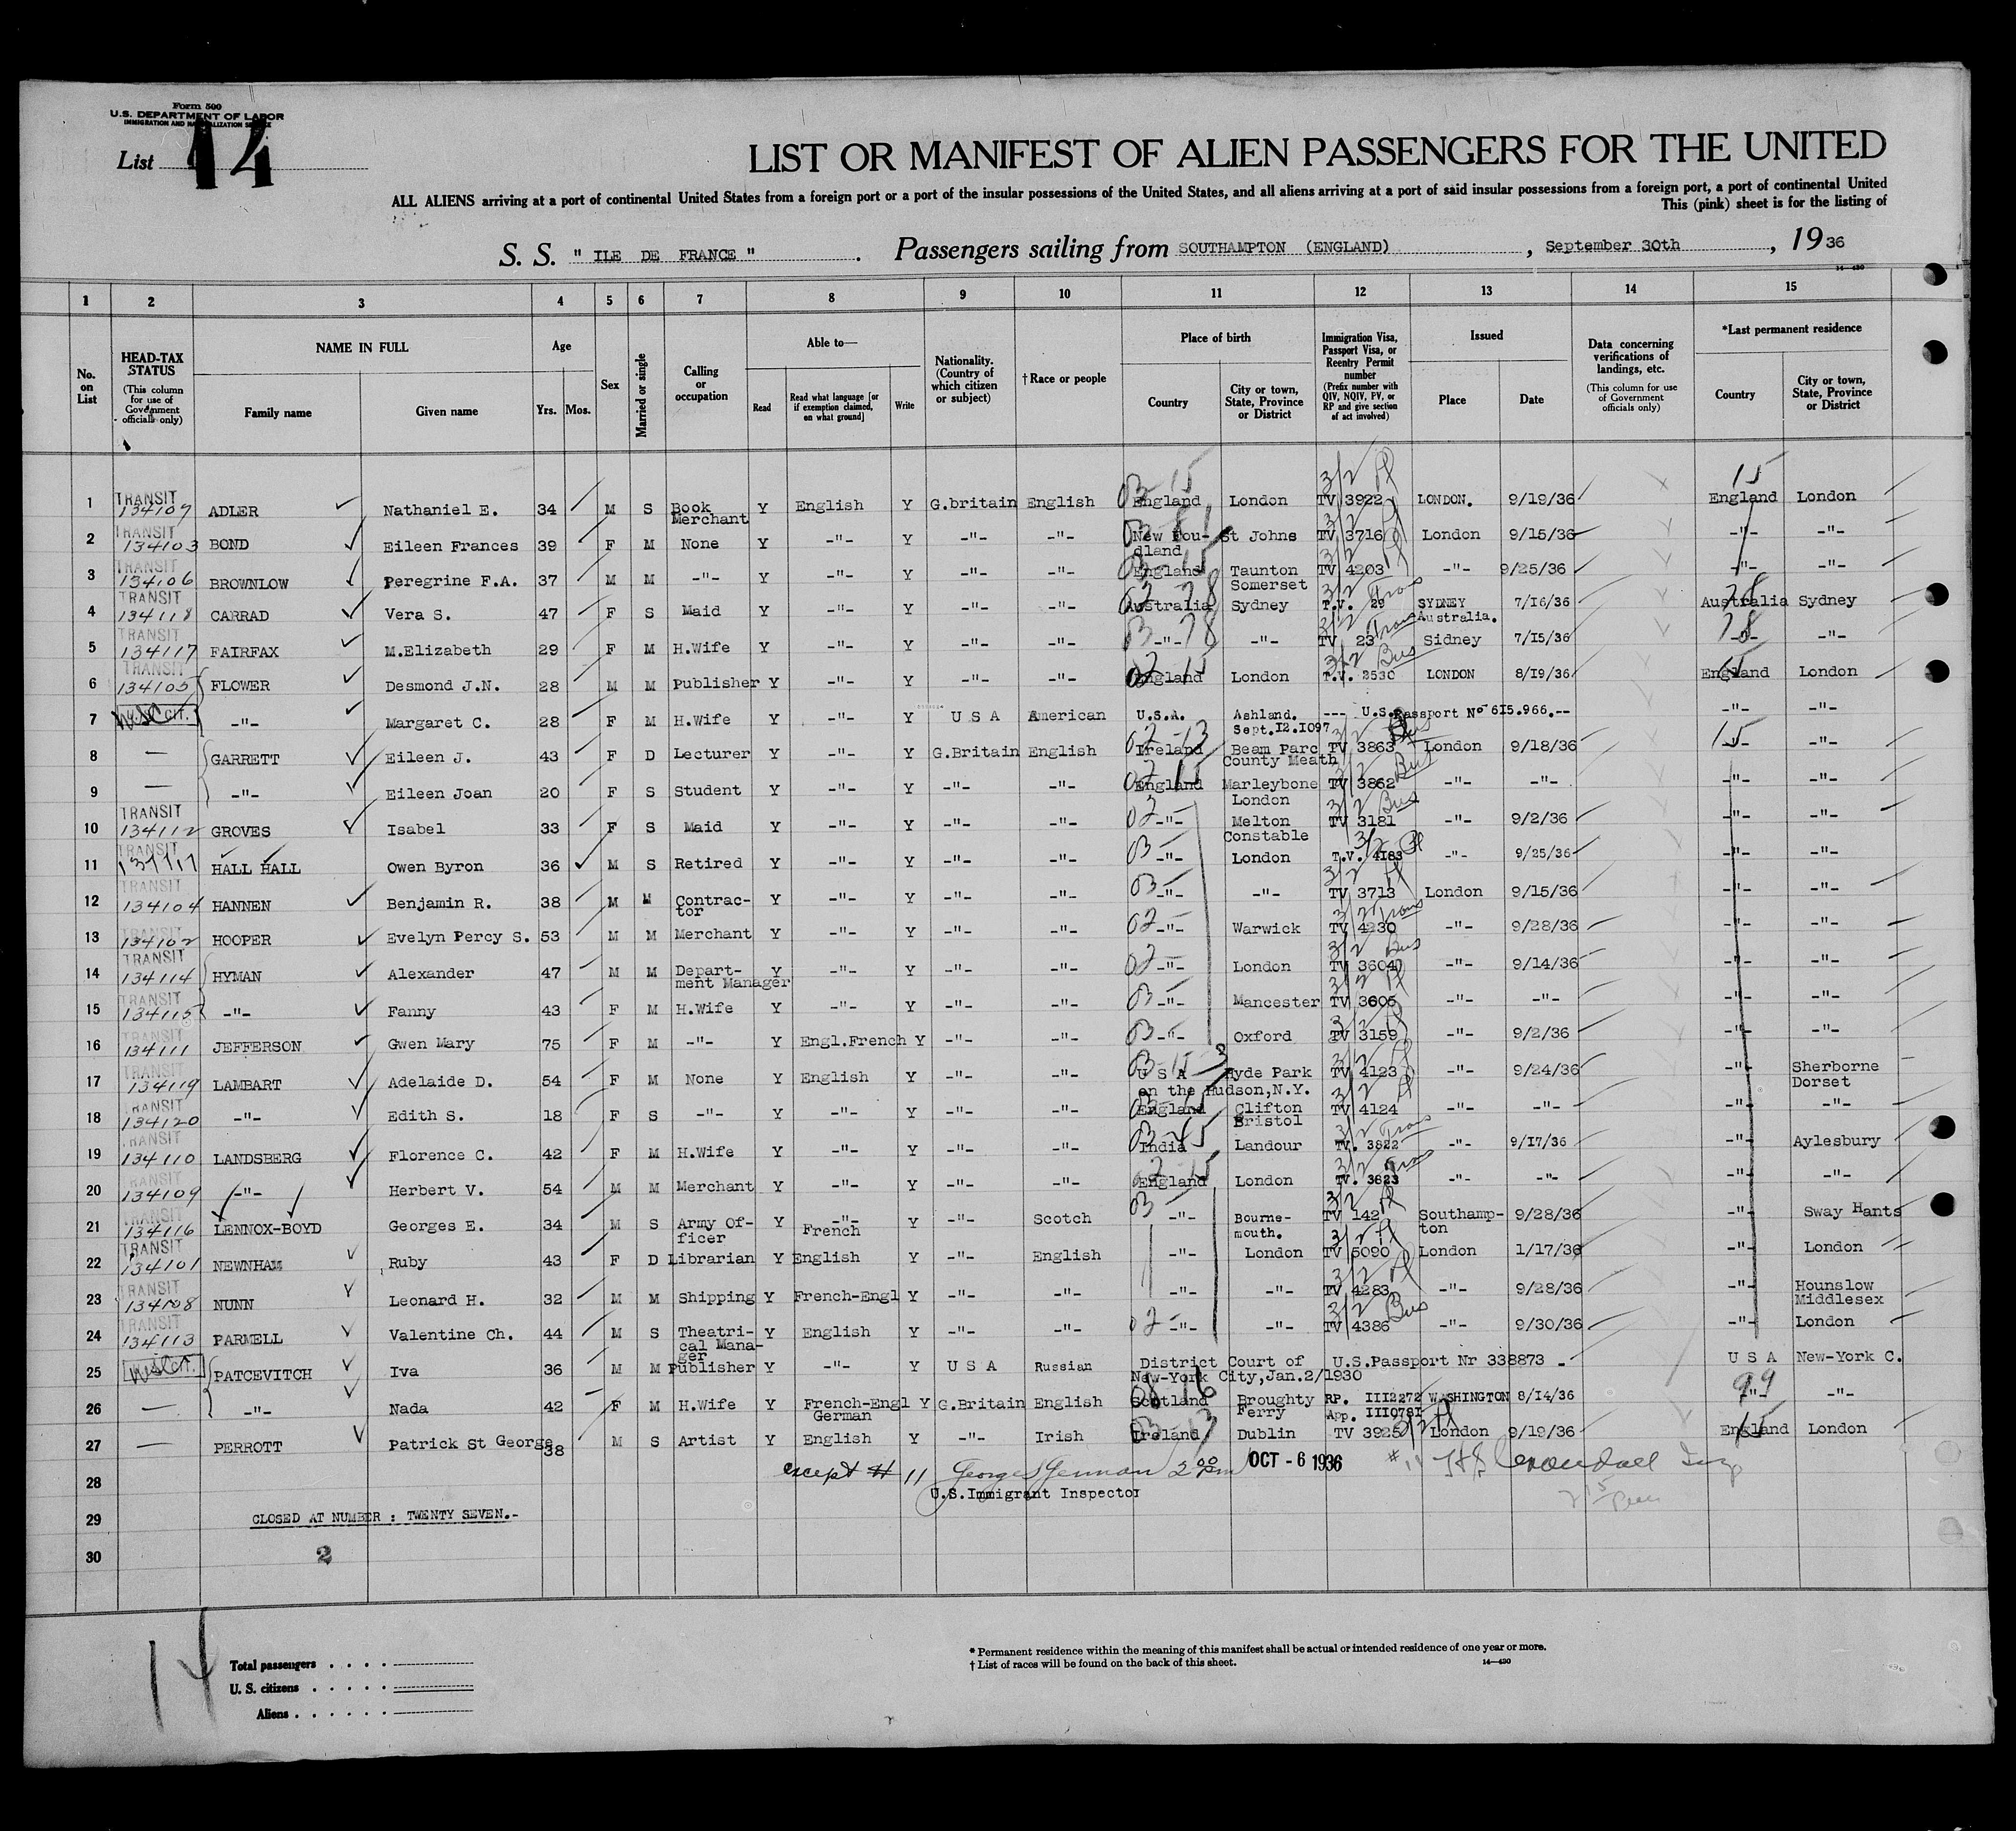 Form 500
U.S. DEPARTMENT OF LABOR
IMMIGRATION AND NATURALIZATION SERVICE
List 14
LIST OR MANIFEST OF ALIEN PASSENGERS FOR THE UNITED
ALL ALIENS arriving at a port of continental United States from a foreign port or a port of the insular possessions of the United States, and all aliens arriving at a port of said insular possessions from a foreign port, a port of continental United
This (pink) sheet is for the listing of
S. S. " ILE DE FRANCE " . Passengers sailing from SOUTHAMPTON (ENGLAND) , September 30th , 19 36
14—430
1 2 3 4 5 6 7 8 9 10 11 12 13 14 15
No. on List
HEAD-TAX STATUS (This column for use of Government officials only)
NAME IN FULL Family name Given name
Age Yrs. Mos.
Sex
Married or single
Calling or occupation
Able to— Read Read what language [or if exemption claimed, on what ground] Write
Nationality. (Country of which citizen or subject)
†Race or people
Place of birth Country City or town, State, Province or District
Immigration Visa, Passport Visa, or Reentry Permit number (Prefix number with QIV, NQIV, PV, or RP and give section of act involved)
Issued Place Date
Data concerning verifications of landings, etc. (This column for use of Government officials only)
*Last permanent residence Country City or town, State, Province or District
1 TRANSIT ADLER Nathaniel E. 34 M S Book Merchant Y English Y G.britain English England London TV 3922 LONDON. 9/19/36 England London
2 TRANSIT 134103 BOND Eileen Frances 39 F M None Y -"- Y -"- -"- New Foudland St Johns TV 3716 London 9/15/36 -"- -"-
3 TRANSIT 134106 BROWNLOW Peregrine F.A. 37 M M -"- Y -"- Y -"- -"- England Taunton Somerset TV 4203 -"- 9/25/36 -"- -"-
4 TRANSIT 134118 CARRAD Vera S. 47 F S Maid Y -"- Y -"- -"- Australia Sydney T.V. 29 SYDNEY Australia. 7/16/36 Australia Sydney
5 TRANSIT 134117 FAIRFAX M.Elizabeth 29 F M H.Wife Y -"- Y -"- -"- -"- -"- TV 23 Sidney 7/15/36 -"- -"-
6 TRANSIT 134105 FLOWER Desmond J.N. 28 M M Publisher Y -"- Y -"- -"- England London T.V. 2530 LONDON 8/19/36 England London
7 U.S. CIT. -"- Margaret C. 28 F M H.Wife Y -"- Y U S A American U.S.A. Ashland. Sept.12.1097 --- U.S.Passport No 615.966.-- -"- -"-
8 — GARRETT Eileen J. 43 F D Lecturer Y -"- Y G.Britain English Ireland Beam Parc County Meath TV 3863 London 9/18/36 -"- -"-
9 — -"- Eileen Joan 20 F S Student Y -"- Y -"- -"- England Marleybone London TV 3862 -"- -"- -"- -"-
10 TRANSIT 134112 GROVES Isabel 33 F S Maid Y -"- Y -"- -"- -"- Melton Constable TV 3181 -"- 9/2/36 -"- -"-
11 TRANSIT HALL HALL Owen Byron 36 M S Retired Y -"- Y -"- -"- -"- London T.V. 4183 -"- 9/25/36 -"- -"-
12 TRANSIT 134104 HANNEN Benjamin R. 38 M M Contractor Y -"- Y -"- -"- -"- -"- TV 3713 London 9/15/36 -"- -"-
13 TRANSIT 134102 HOOPER Evelyn Percy S. 53 M M Merchant Y -"- Y -"- -"- -"- Warwick TV 4230 -"- 9/28/36 -"- -"-
14 TRANSIT 134114 HYMAN Alexander 47 M M Department Manager Y -"- Y -"- -"- -"- London TV 3604 -"- 9/14/36 -"- -"-
15 TRANSIT 134115 -"- Fanny 43 F M H.Wife Y -"- Y -"- -"- -"- Mancester TV 3605 -"- -"- -"- -"-
16 TRANSIT 134111 JEFFERSON Gwen Mary 75 F M -"- Y Engl.French Y -"- -"- -"- Oxford TV 3159 -"- 9/2/36 -"- -"-
17 TRANSIT 134119 LAMBART Adelaide D. 54 F M None Y English Y -"- -"- U S A Hyde Park on the Hudson,N.Y. TV 4123 -"- 9/24/36 -"- Sherborne Dorset
18 TRANSIT 134120 -"- Edith S. 18 F S -"- Y -"- Y -"- -"- England Clifton Bristol TV 4124 -"- -"- -"- -"-
19 TRANSIT 134110 LANDSBERG Florence C. 42 F M H.Wife Y -"- Y -"- -"- India Landour TV. 3822 -"- 9/17/36 -"- Aylesbury
20 TRANSIT 134109 -"- Herbert V. 54 M M Merchant Y -"- Y -"- -"- England London TV. 3823 -"- -"- -"- -"-
21 TRANSIT 134116 LENNOX-BOYD Georges E. 34 M S Army Officer Y -"- French Y -"- Scotch -"- Bournemouth. TV 142 Southampton 9/28/36 -"- Sway Hants
22 TRANSIT 134101 NEWNHAM Ruby 43 F D Librarian Y English Y -"- English -"- London TV 5090 London 1/17/36 -"- London
23 TRANSIT 134108 NUNN Leonard H. 32 M M Shipping Y French-Engl Y -"- -"- -"- -"- TV 4283 -"- 9/28/36 -"- Hounslow Middlesex
24 TRANSIT 134113 PARNELL Valentine Ch. 44 M S Theatrical Manager Y English Y -"- -"- -"- -"- TV 4386 -"- 9/30/36 -"- London
25 U.S. CIT. PATCEVITCH Iva 36 M M Publisher Y -"- Y U S A Russian District Court of New-York City,Jan.2/1930 U.S.Passport Nr 338873 - U S A New-York C.
26 — -"- Nada 42 F M H.Wife Y French-Engl German Y G.Britain English Scotland Broughty Ferry RP. III2272 App. III0781 WASHINGTON 8/14/36 -"- -"-
27 — PERROTT Patrick St George 38 M S Artist Y English Y -"- Irish Ireland Dublin TV 3925 London 9/19/36 England London
28 except # 11 2 00 pm OCT - 6 1936 # 11
U.S.Immigrant Inspector
29 CLOSED AT NUMBER : TWENTY SEVEN.-
30 2
14
Total passengers . . . .
U. S. citizens . . . . .
Aliens . . . . . .
* Permanent residence within the meaning of this manifest shall be actual or intended residence of one year or more.
† List of races will be found on the back of this sheet.
14—430